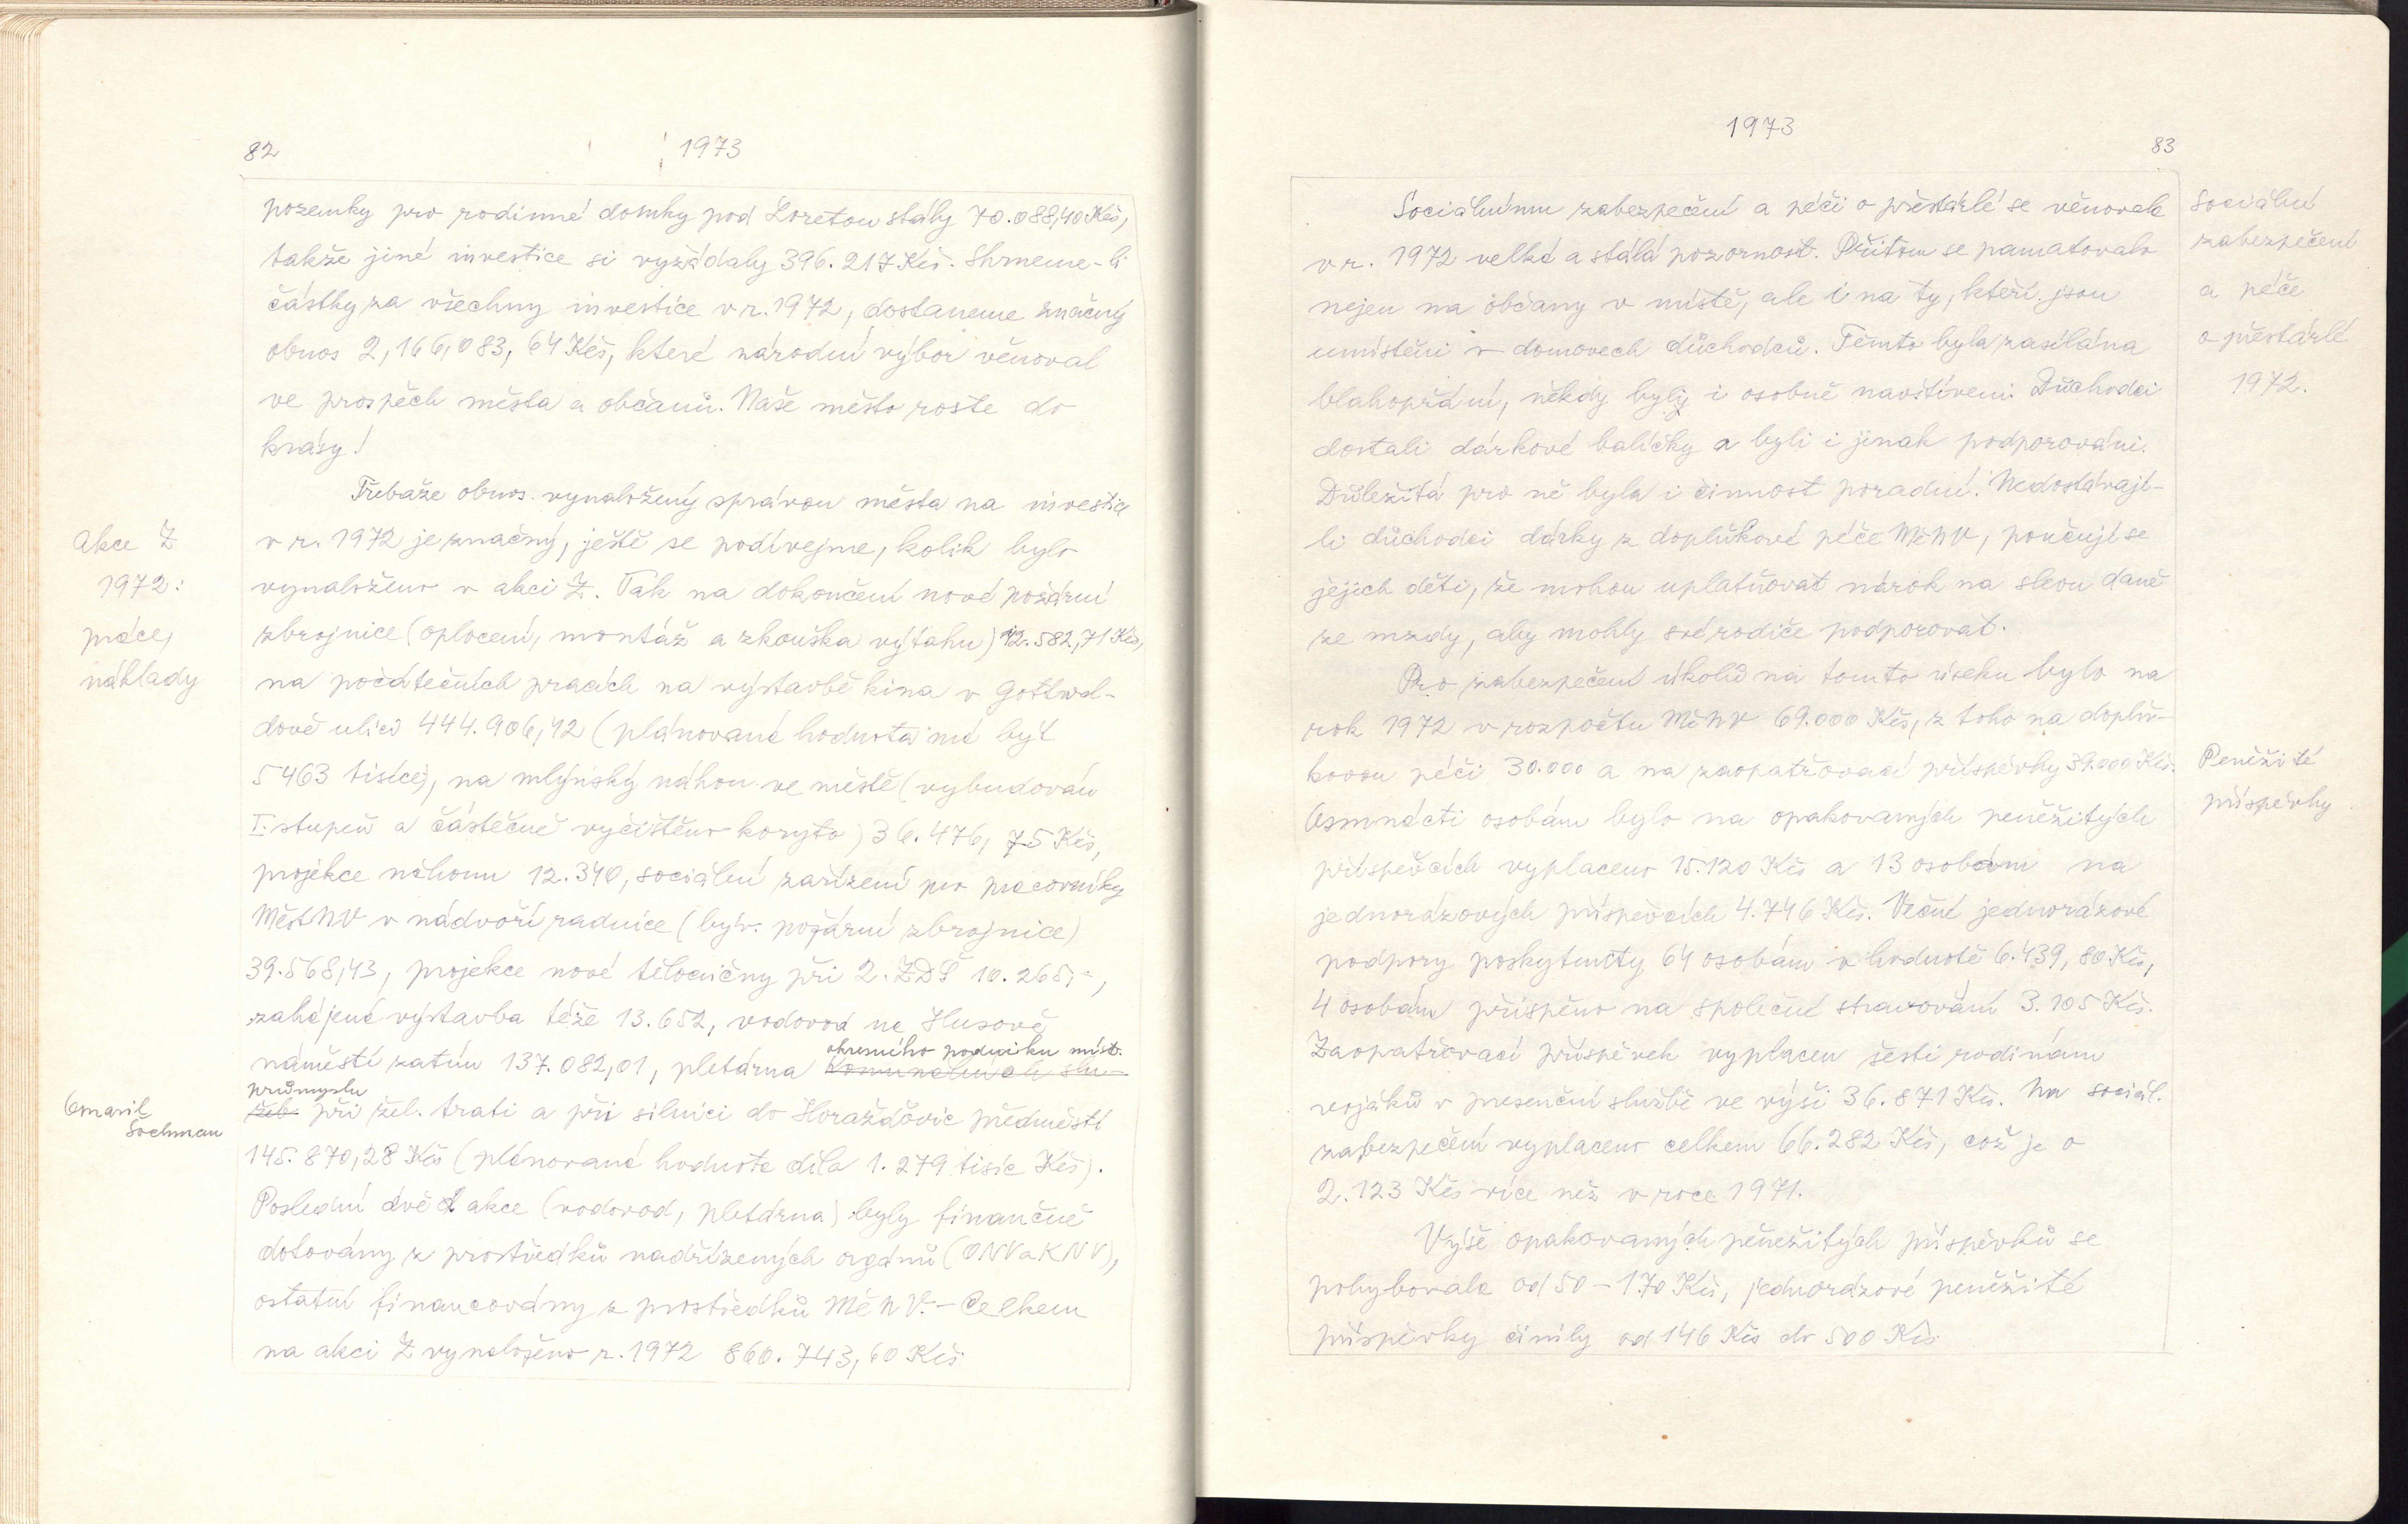 82
1973
pozemky pro rodinné domky pod Loretou stály 70.088,40 Kčs,
takže jiné investice si vyžádaly 396.217 Kčs. Shrneme-li
částky za všechny investice v r. 1972, dostaneme značný
obnos 2,166,083,64 Kčs, které národní výbor věnoval
ve prospěch města a občanů. Naše město roste do
krásy!
Třebaže obnos vynaložený správou města na investice
Akce Z
v r. 1972 je značný, ještě se podívejme, kolik bylo
1972:
vynaloženo v akci Z. Tak na dokončení nové požární
práce,
zbrojnice (oplocení, montáž a zkouška výtahu) 12.582,71 Kčs,
náklady
na počátečních pracích na výstavbě kina v Gottwal-
dově ulici 444.906,12 (plánovaná hodnota má být
5463 tisíce), na mlýnský náhon ve městě (vybudován
I. stupeň a částečně vyčištěno koryto) 36.476,75 Kčs,
projekce náhonu 12.340, sociální zařízení pro pracovníky
MěstNV v nádvoří radnice (býv. požární zbrojnice)
39.568,43, projekce nové tělocvičny při 2. ZDŠ 10.265,-,
zahájená výstavba téže 13.652, vodovod na Husově
okresního podniku míst.
náměstí zatím 137.082,01, pletárna komunálních slu-
průmyslu
žeb při žel. trati a při silnici do Horažďovic předměstí
Opravil
Sochman
145.870,28 Kčs (plánovaná hodnota díla 1.279 tisíc Kčs).
Poslední dvě akce (vodovod, pletárna) byly finančně
dotovány z prostředků nadřízených orgánů (ONV a KNV),
ostatní financovány z prostředků MěNV. - Celkem
na akci Z vynaloženo r. 1972 860.743,60 Kčs
1973
83
Sociálnímu zabezpečení a péči o přestárlé se věnovala
Sociální
zabezpečení
a péče
o přestárlé
1972.
v r. 1972 velká a stálá pozornost. Přitom se pamatovalo
nejen na občany v místě, ale i na ty, kteří jsou
umístěni v domovech důchodců. Těmto byla zasílána
blahopřání, někdy byly i osobně navštíveni. Důchodci
dostali dárkové balíčky a byli i jinak podporováni.
Důležitá pro ně byla i činnost poradní. Nedostávají-
li důchodci dávky z doplňkové péče MěNV, poučují se
jejich děti, že mohou uplatňovat nárok na slevu daně
ze mzdy, aby mohly své rodiče podporovat.
Pro zabezpečení úkolů na tomto úseku bylo na
rok 1972 v rozpočtu MěNV 69.000 Kčs, z toho na doplň-
kovou péči 30.000 a na zaopatřovací příspěvky 39.000 Kčs.
Peněžité
příspěvky
Osmnácti osobám bylo na opakovaných peněžitých
příspěvcích vyplaceno 15.120 Kčs a 13 osobám na
jednorázových příspěvcích 4.746 Kčs. Věcné jednorázové
podpory poskytnuty 64 osobám v hodnotě 6.439,80 Kčs,
4 osobám přispěno na společné stravování 3.105 Kčs.
Zaopatřovací příspěvek vyplacen šesti rodinám
vojáků v presenční službě ve výši 36.871 Kčs. Na sociál.
zabezpečení vyplaceno celkem 66.282 Kčs, což je o
2.123 Kčs více než v roce 1971.
Výše opakovaných peněžitých příspěvků se
pohybovala od 50 - 170 Kčs, jednorázové peněžité
příspěvky činily od 146 Kčs do 500 Kčs